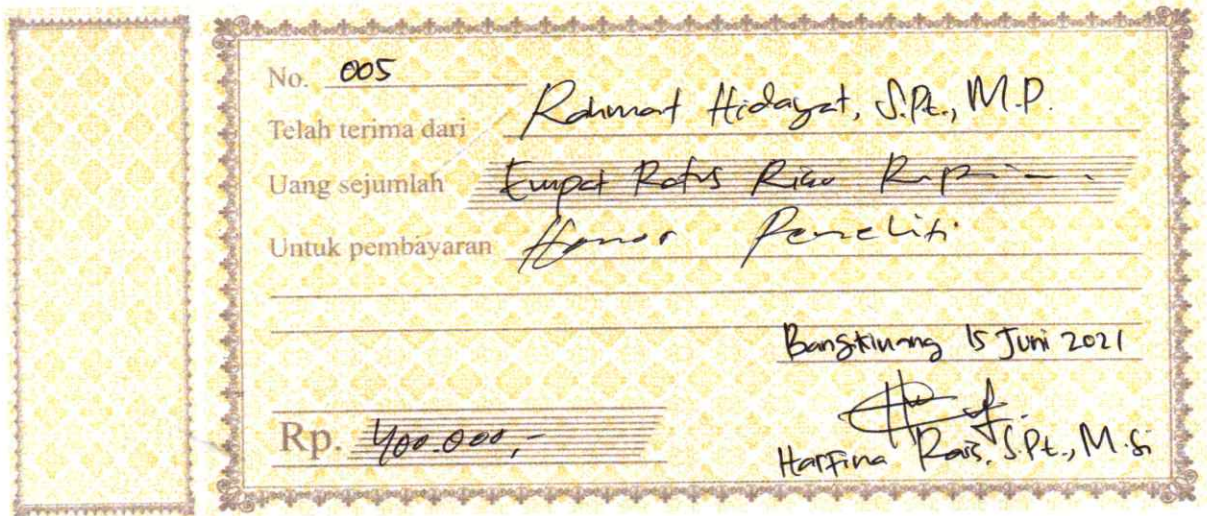 No. 005
Telah terima dari Rahmat Hidayat, S.Pt., M.P.
Uang sejumlah Empat Ratus Ribu Rupiah
Untuk pembayaran Honor Peneliti
Bangkinang 15 Juni 2021
Rp. 400.000,-
Harfina Rais, S.Pt., M.Si